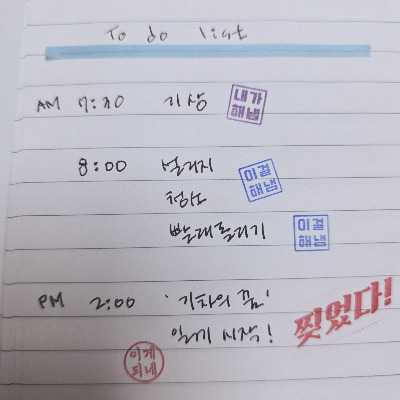 To do list
AM 7:30 기상 내가해냄
8:00 설거지 이걸해냄
청소
빨래돌리기 이걸해냄
PM 2:00 '기차의 꿈'
읽기 시작! 찢었다!
이게되네